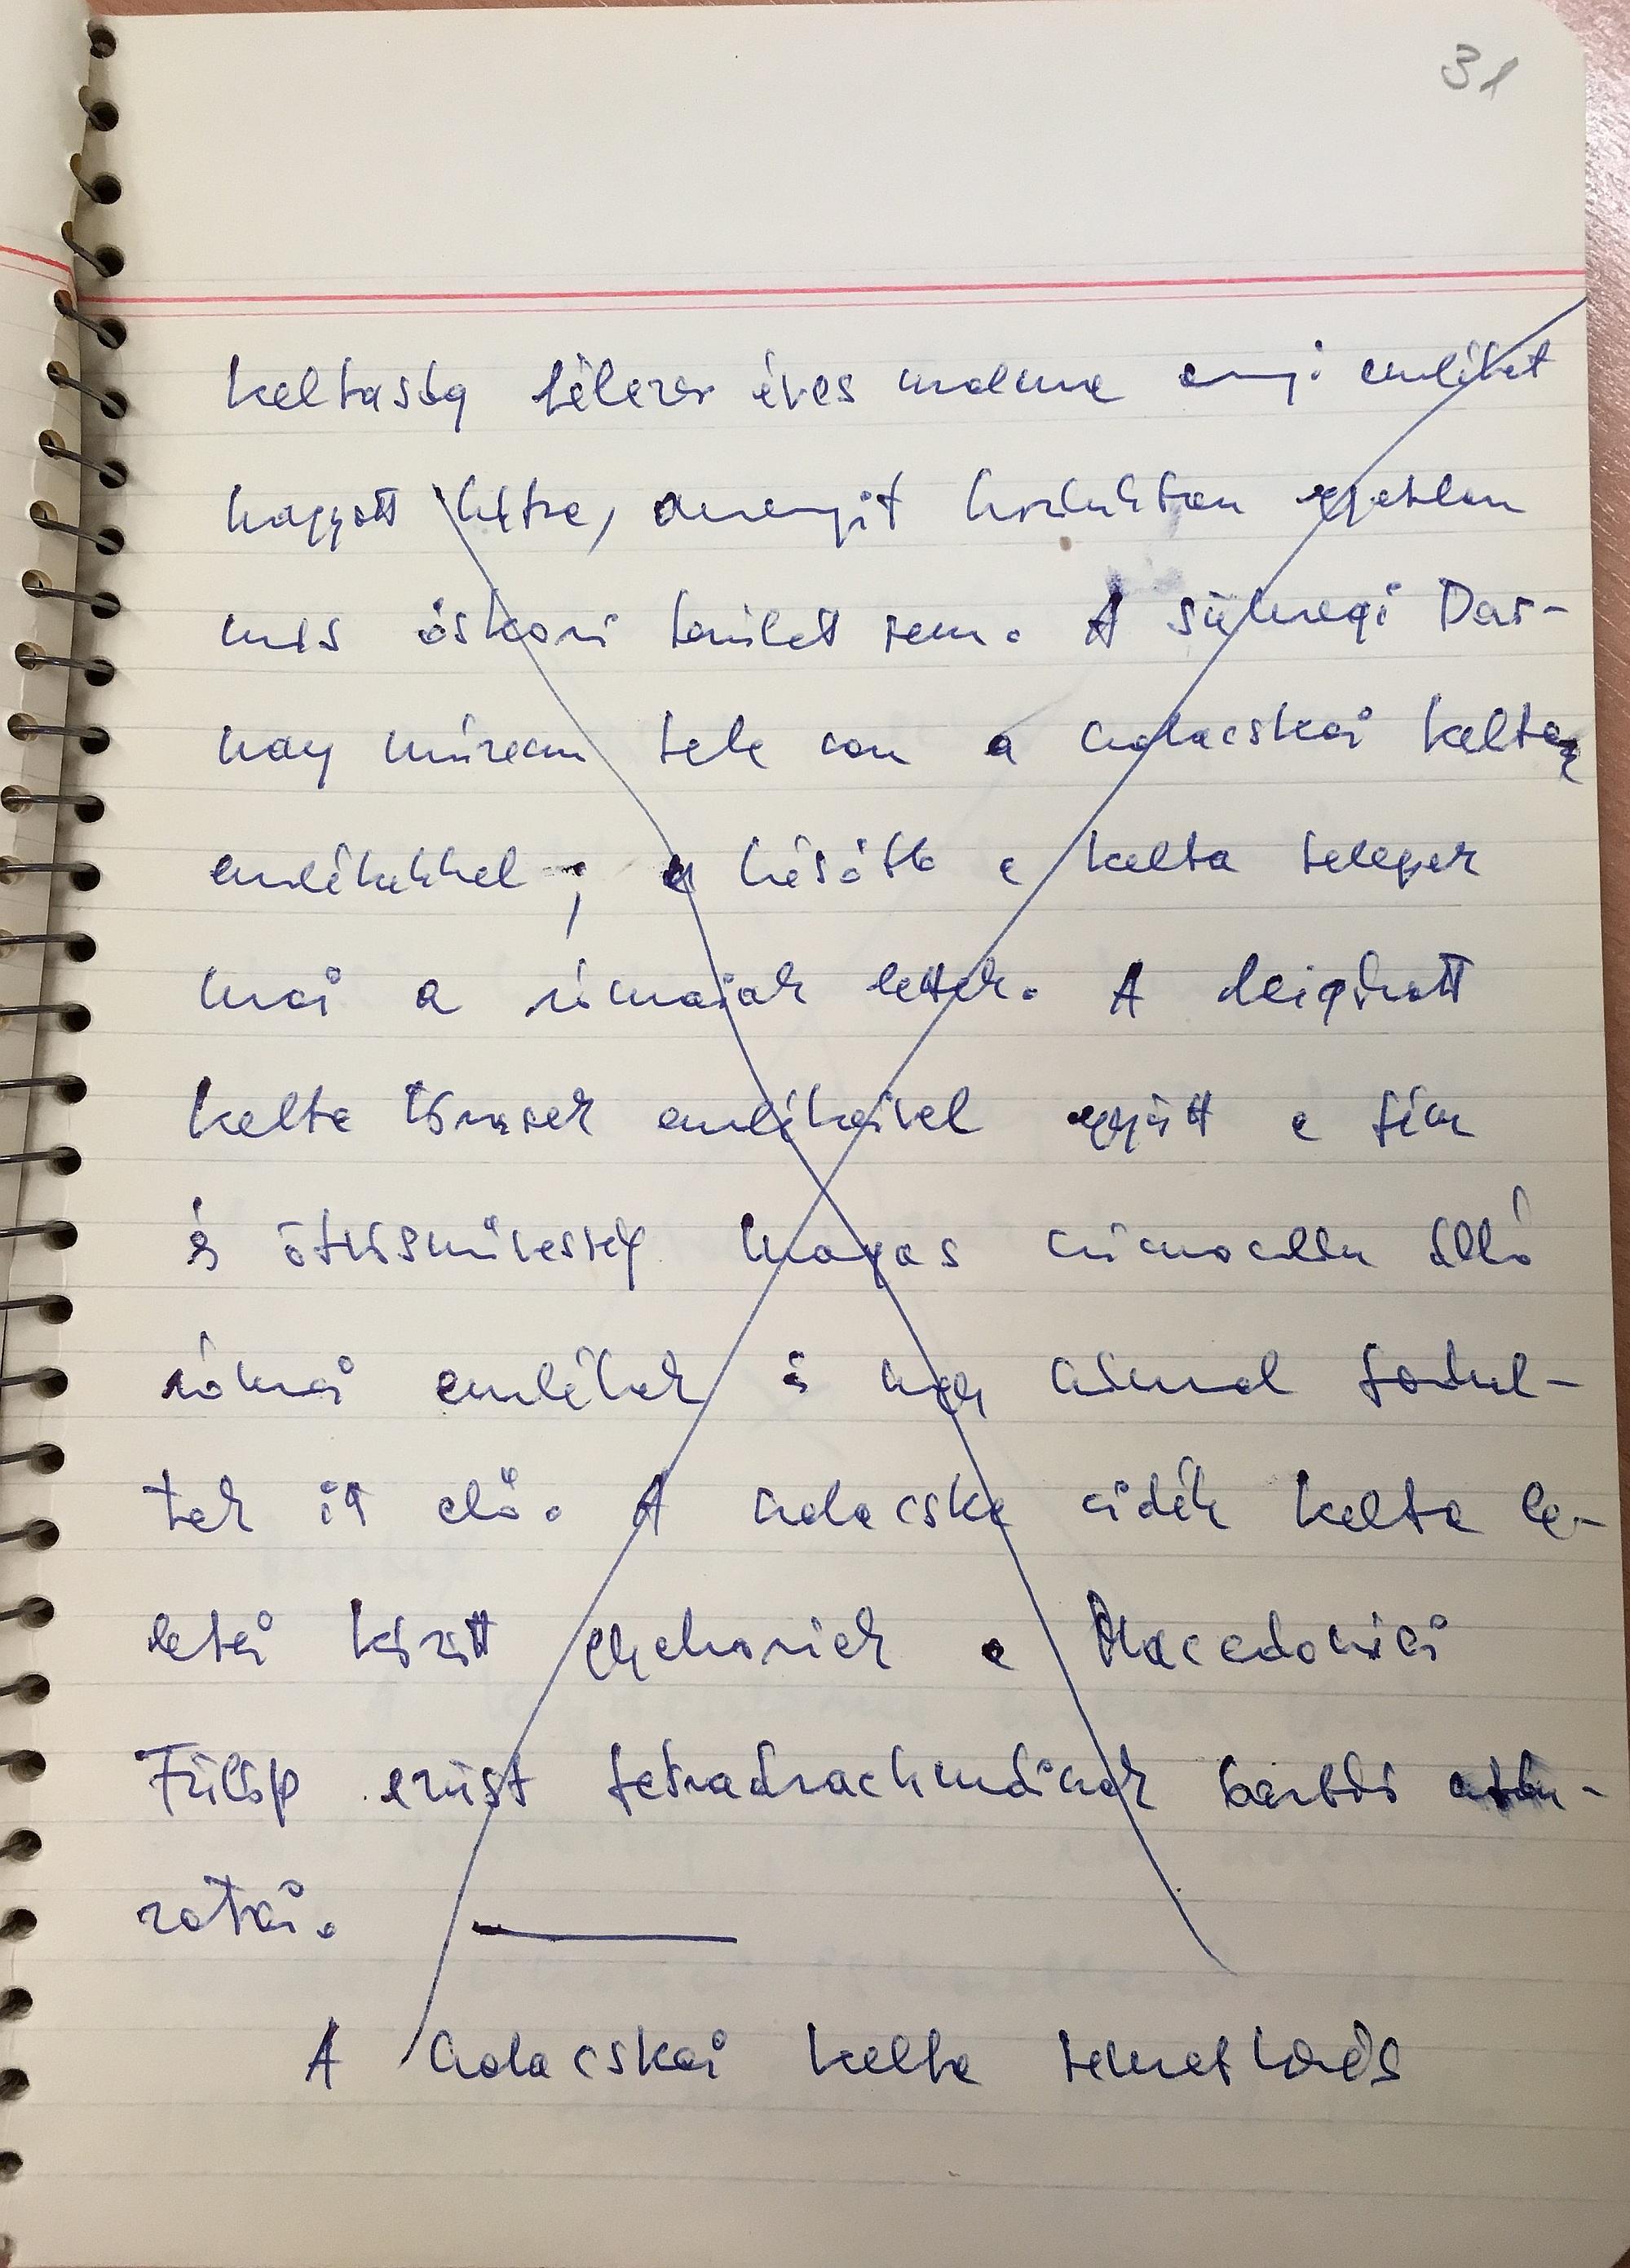 31
keltaság félezer éves uralma annyi emléket
hagyott hátra, amennyit hazánkban egyetlen
más őskori terület sem. A sümegi Dar-
nay múzeum tele van a csabacskai kelta
emlékekkel, a később a kelta telepek
mai a rómaiak lettek. A kelta
kelta emlékeivel együtt a fém
és ötvösművesség magas színvonalán álló
római emlékek is nagy számmal fordul-
tak itt elő. A vidék kelta le-
letei között a Macedoniai
Fülöp ezüst tetradrachmáinak barbár után-
zatai.
A kelta temetkezés